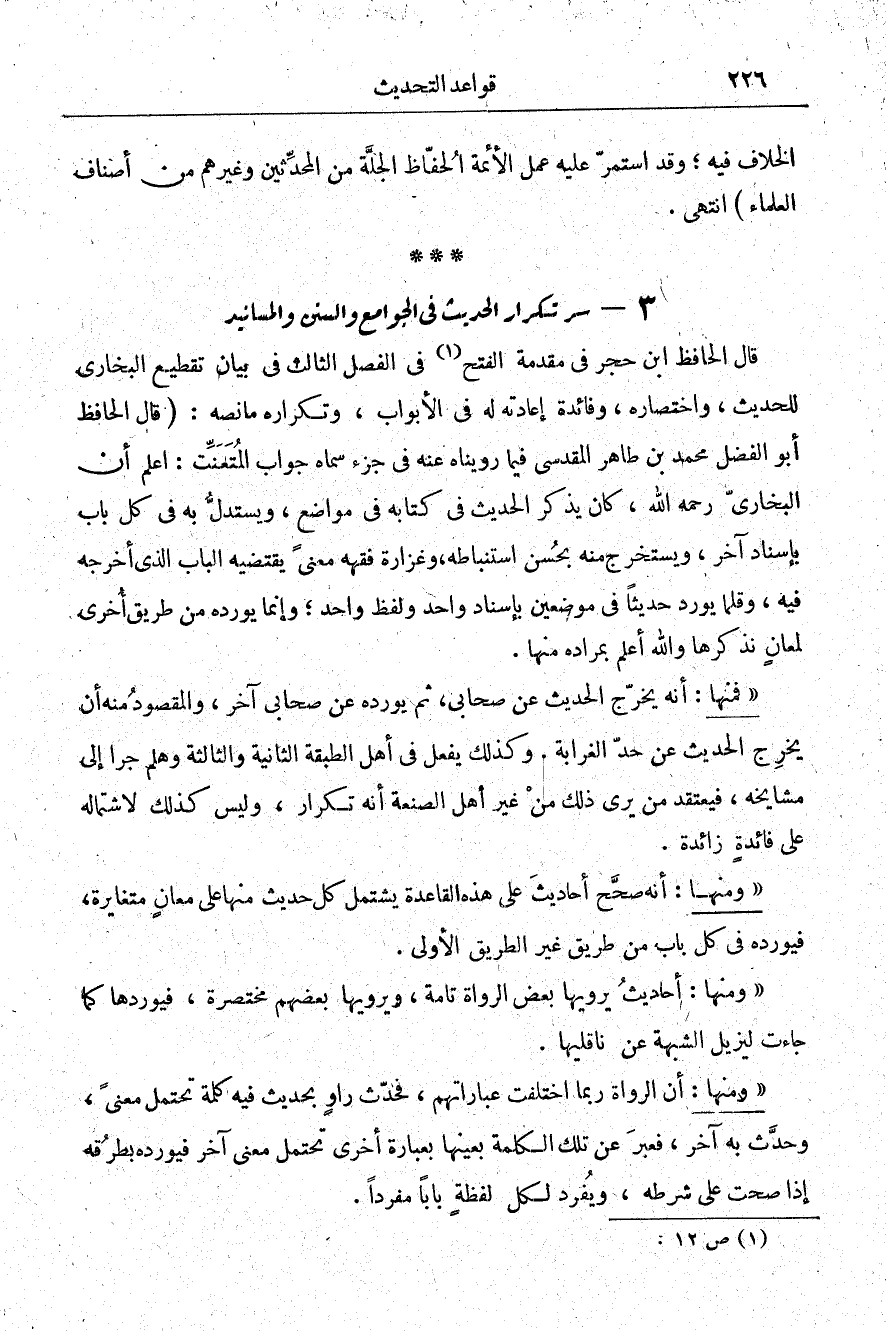 ٢٢٦ قواعد التحديث
الخلاف فيه ؛ وقد استمرّ عليه عمل الأئمة الحفّاظ الجلَّة من المحدِّثين وغيرهم من أصناف
العلماء ) انتهى .
***
٣ — سر تكرار الحديث فى الجوامع والسنن والمسانيد
قال الحافظ ابن حجر فى مقدمة الفتح(١) فى الفصل الثالث فى بيان تقطيع البخارى
للحديث ، واختصاره ، وفائدة إعادته له فى الأبواب ، وتكراره مانصه : ( قال الحافظ
أبو الفضل محمد بن طاهر المقدسى فيما رويناه عنه فى جزء سماه جواب المُتَعَنِّت : اعلم أن
البخارىّ رحمه الله ، كان يذكر الحديث فى كتابه فى مواضع ، ويستدلُّ به فى كل باب
بإسناد آخر ، ويستخرج منه بحُسن استنباطه، وغزارة فقهه معنىً يقتضيه الباب الذى أخرجه
فيه ، وقلما يورد حديثاً فى موضعين بإسناد واحد ولفظ واحد ؛ وإنما يورده من طريق أُخرى
لمعانٍ نذكرها والله أعلم بمراده منها .
« فمنْها : أنه يخرّج الحديث عن صحابى، ثم يورده عن صحابى آخر ، والمقصود منه أن
يخرِج الحديث عن حدّ الغرابة . وكذلك يفعل فى أهل الطبقة الثانية والثالثة وهلم جرا إلى
مشايخه ، فيعتقد من يرى ذلك منْ غير أهل الصنعة أنه تكرار ، وليس كذلك لاشتماله
على فائدةٍ زائدة .
« ومنهـا : أنه صحَّح أحاديثَ على هذه القاعدة يشتمل كل حديث منها على معانٍ متغايرة،
فيورده فى كل باب من طريق غير الطريق الأولى .
« ومنها : أحاديثُ يرويها بعض الرواة تامة ، ويرويها بعضهم مختصرة ، فيوردها كما
جاءت ليزيل الشبهة عن ناقليها .
« ومنها : أن الرواة ربما اختلفت عباراتهم ، فحدّث راوٍ بحديث فيه كلمة تحتمل معنىً ،
وحدَّث به آخر ، فعبرَ عن تلك الكلمة بعينها بعبارة أخرى تحتمل معنى آخر فيورده بطرُقه
إذا صحت على شرطه ، ويُفرد لكل لفظةٍ باباً مفرداً .
(١) ص ١٢ :